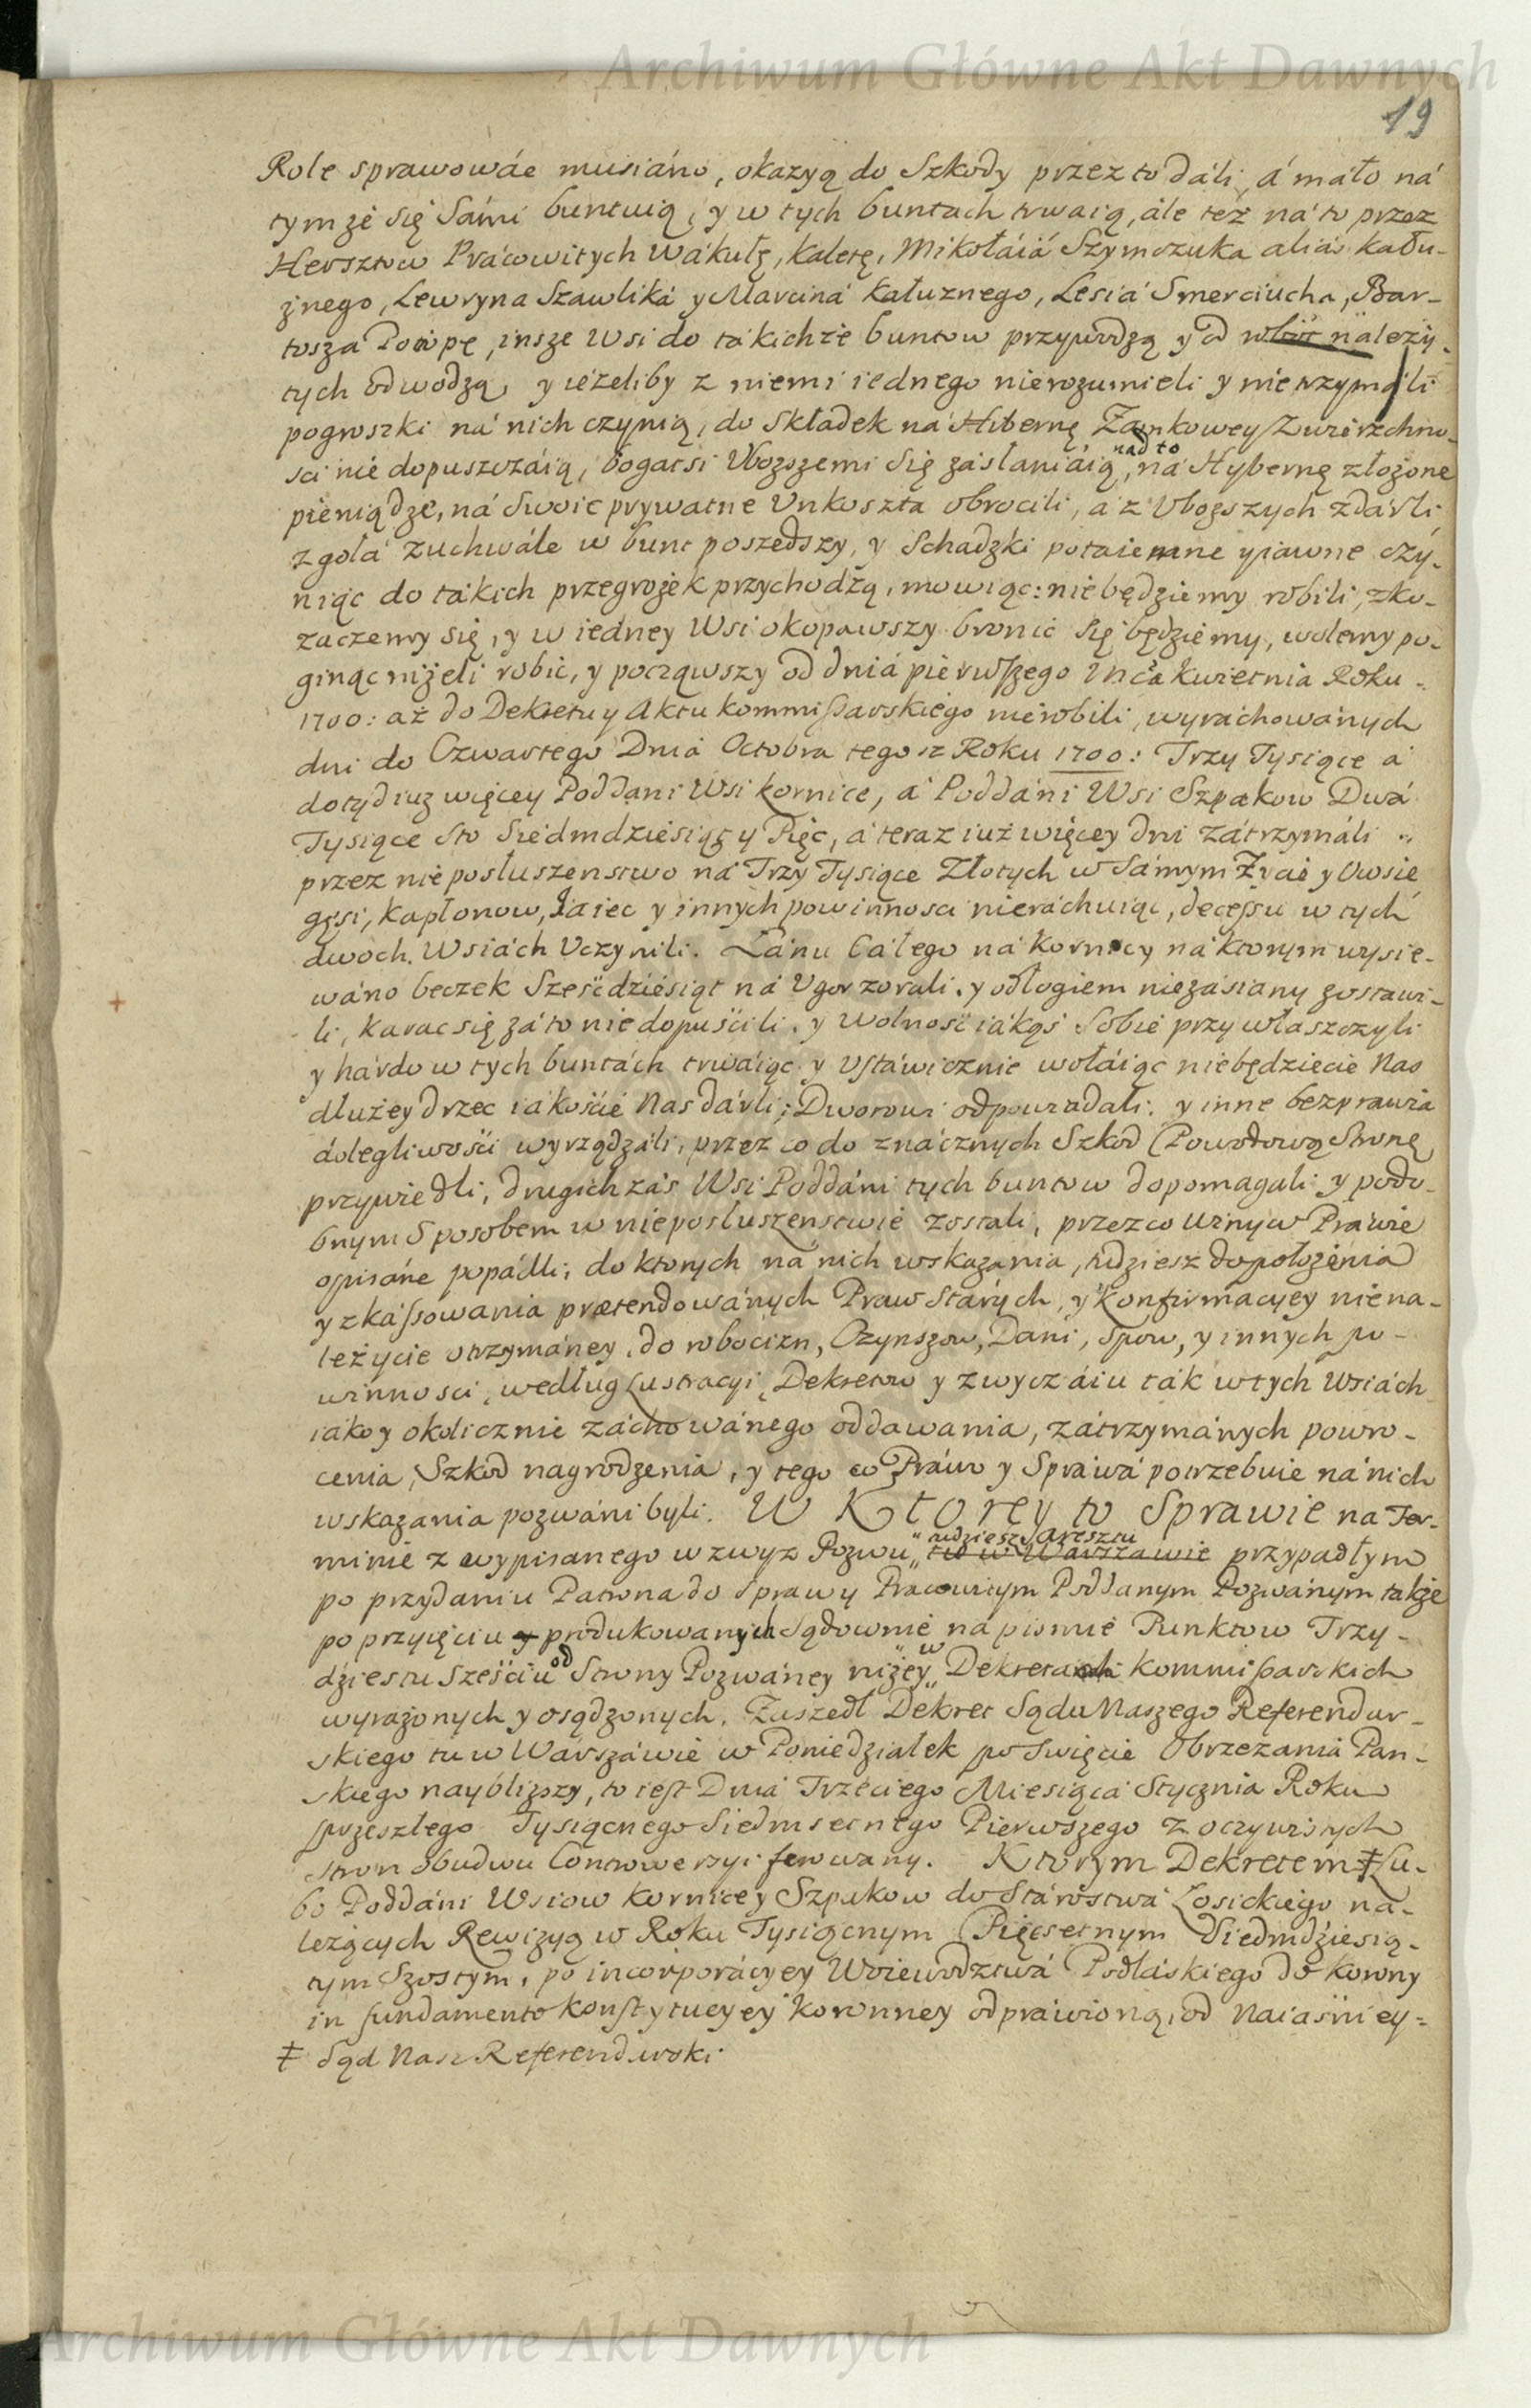 Archiwum Główne Akt Dawnych
19
Role sprawowáć musiáno, okazyą do Szkody przez to dáli, á máło ná
tym że się Sámi buntuią, y w tych buntach trwaią, ále też ná to przez
Hersztow Prácowitych Wákułę, Kaletę, Mikołáiá Szymczuka aliás Kału-
żnego, Lewryna Szawliká y Marciná Kałuznego, Lesiá Smerciucha, Bar-
tosza Powpę, insze Wsi do tákichże buntow przywodzą y od włok należy-
tych odwodzą, y ieżeliby z niemi iednego nierozumieli y nietrzymáli
pogroszki ná nich czynią, do Składek ná Hibernę Zamkowey Zwierzchno-
sci nie dopuszczáią, bogatsi Vbozszemi się zásłaniáią, nad to ná Hybernę złożone
pieniądze, ná Swoie prywatne Vnkoszta obrocili, a z Vbozszych zdárli,
zgołá zuchwále w bunt poszedszy, y Schadzki potaiemne y iawne czy-
niąc do tákich przegrożek przychodzą, mowiąc: niebędziemy robili, zko-
zaczemy się, y w iedney Wsi okopawszy bronić się będziemy, wolemy po-
ginąc niżeli robić, y począwszy od dniá pierwszego Mca Kwietnia Roku
1700: aż do Dekretu y Aktu Kommissarskiego nierobili, wyráchowánych
dni do Czwartego Dniá Octobra tegosz Roku 1700: Trzy Tysiące á
dotyd iuz więcey Poddani Wsi Kornice, á Poddáni Wsi Szpakow Dwá
Tysiące Sto Siedmdziesiąt y Pięć, á teraz iuż więcey dni zátrzymáli
przez nieposłuszenstwo ná Trzy Tysiące Złotych w Sámym Życie y Owsie
gęsi, Kapłonow, Iaiec y innych powinnosci nieráchuiąc, decessu w tych
dwoch Wsiách Vczynili. Łánu Cáłego ná Kornicy ná ktorym wysie-
wáno beczek Sześćdziesiąt ná Vgor zorali, y odłogiem niezásiany zostawi-
li, karac się zá to niedopuścili, y Wolność iákąś Sobie przywłaszczyli
y hárdo w tych buntách trwáiąc y Vstáwicznie wołáiąc niebędziecie Nas
dłużey drzec iákoście Nas dárli, Dworowi odpowiadáli, y inne bezprawia
dolegliwości wyrządzáli, przez co do znácznych Szkod Powodową Stronę
przywiedli, drugich zás Wsi Poddáni tych buntow dopomagali y podo-
bnym Sposobem w nieposłuszenstwie zostali, przez co Winy w Práwie
opisáne popádli, do ktorych ná nich wskazania, tudziesz do położenia
y zkássowania prætendowánych Praw Stárych, y Konfirmacyey niena-
leżycie otrzymáney, do robocizn, Czynszow, Dani, Spow, y innych po-
winnosci, według Lustracyi, Dekretow y zwyczáiu ták w tych Wsiách
iáko y okolicznie záchowánego oddawania, zátrzymánych powro-
cenia, Szkod nagrodzenia, y tego co Práwo y Spráwá potrzebuie ná nich
wskazania pozwáni byli. W Ktorey to Sprawie na Ter-
minie z wypisanego wzwyz Pozwu tudziesz Aresztu tu w Warszawie przypadłym
po przydaniu Patrona do Sprawy Pracowitym Poddanym Pozwánym także
po przyięciu y produkowanych Sądownie ná pismie Punktow Trzy-
dziestu Sześciu od Strony Pozwáney niżey w Dekretach Kommissarskich
wyrażonych y osądzonych, Zaszedł Dekret Sądu Naszego Referendar-
skiego tu w Wárszáwie w Poniedziałek po Swięcie Obrzezania Pan-
skiego naybliższy, to iest Dniá Trzeciego Miesiącá Stycznia Roku
przeszłego Tysiącnego Siedmsetnego Pierwszego z oczywistych
Stron obudwu Controwersyi ferowany. Ktorym Dekretem ‡ Lu-
bo Poddáni Wsiow Kornice y Szpakow do Stárostwá Łosickiego na-
leżących Rewizyą w Roku Tysiącnym Pięćsetnym Siedmdziesią-
tym Szostym, po incorporácyey Woiewodztwá Podláskiego do Korony
in fundamento Konstytucyey Koronney odpráwioną, od Naiaśniey-
‡ Sąd Nasz Referendarski
Archiwum Główne Akt Dawnych